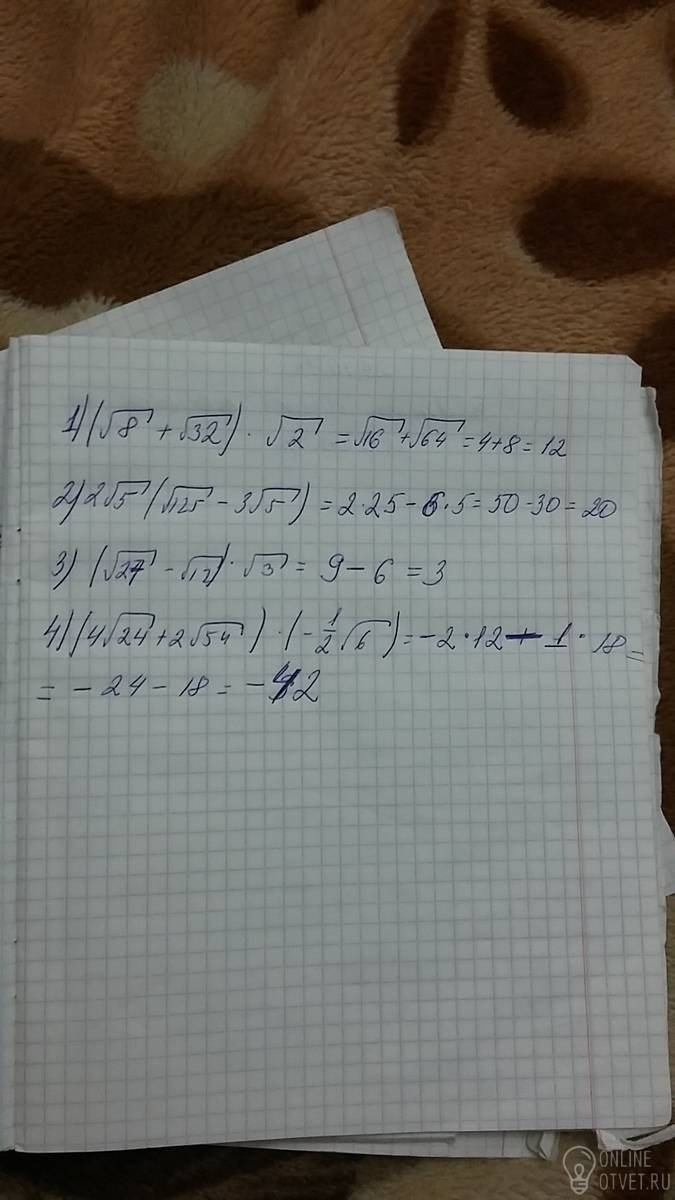 1) (√8 + √32) · √2 = √16 + √64 = 4+8 = 12
2) 2√5 (√125 - 3√5) = 2·25 - 6·5 = 50 - 30 = 20
3) (√27 - √12) · √3 = 9 - 6 = 3
4) (4√24 + 2√54) · (-1/2 √6) = -2·12 - 1·18 =
= -24 - 18 = -42
ONLINE
OTVET.RU